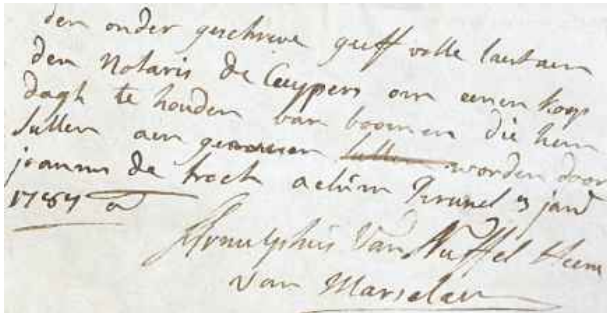 den onder geschreve geeff volle last aen
den Notaris de Cuypers om eenen koop
dagh te houden van boomen die hem
sullen aen gewesen sullen worden door
joannes de trock actum 3 jan
1787
Arnulphus Van Nuffel Heem
van Marselaer